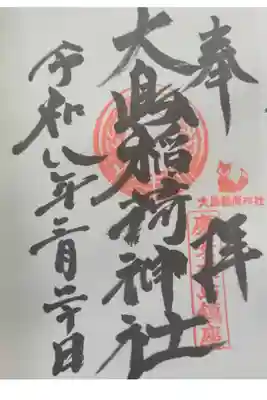 奉拝
大島稲荷神社
大島稲荷神社
令和八年三月二十日